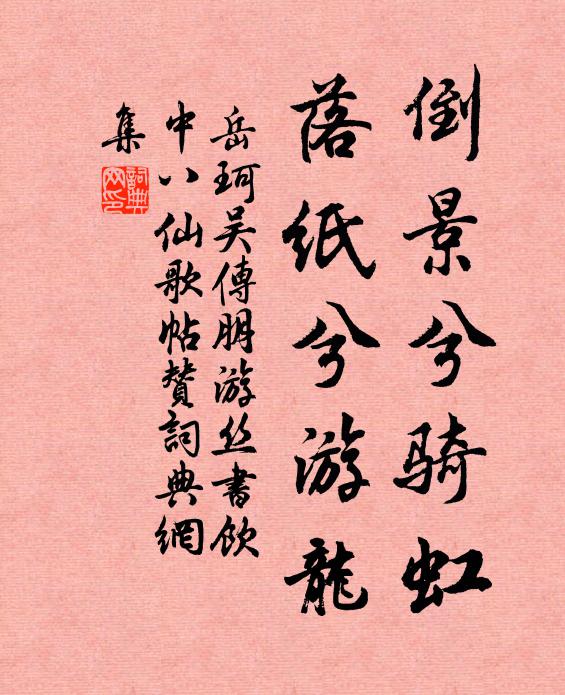 倒景兮骑虹
落纸兮游龍
岳珂吴傅朋游丝書飲
中八仙歌帖赞詞典網
集
詞典网印